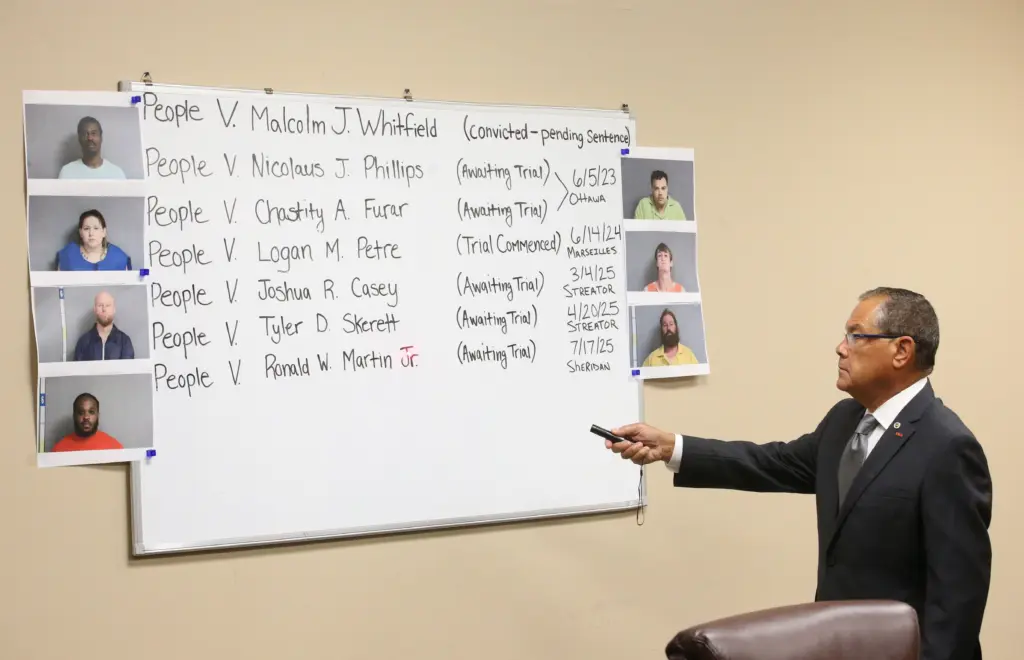 People V. Malcolm J. Whitfield (Convicted - pending Sentence)
People V. Nicolaus J. Phillips (Awaiting Trial) 6/5/23
OTTAWA
People V. Chastity A. Furar (Awaiting Trial)
People V. Logan M. Petre (Trial Commenced) 6/14/24
MARSEILLES
People V. Joshua R. Casey (Awaiting Trial) 3/4/25
STREATOR
People V. Tyler D. Skerett (Awaiting Trial) 4/20/25
STREATOR
People V. Ronald W. Martin Jr. (Awaiting Trial) 7/17/25
SHERIDAN